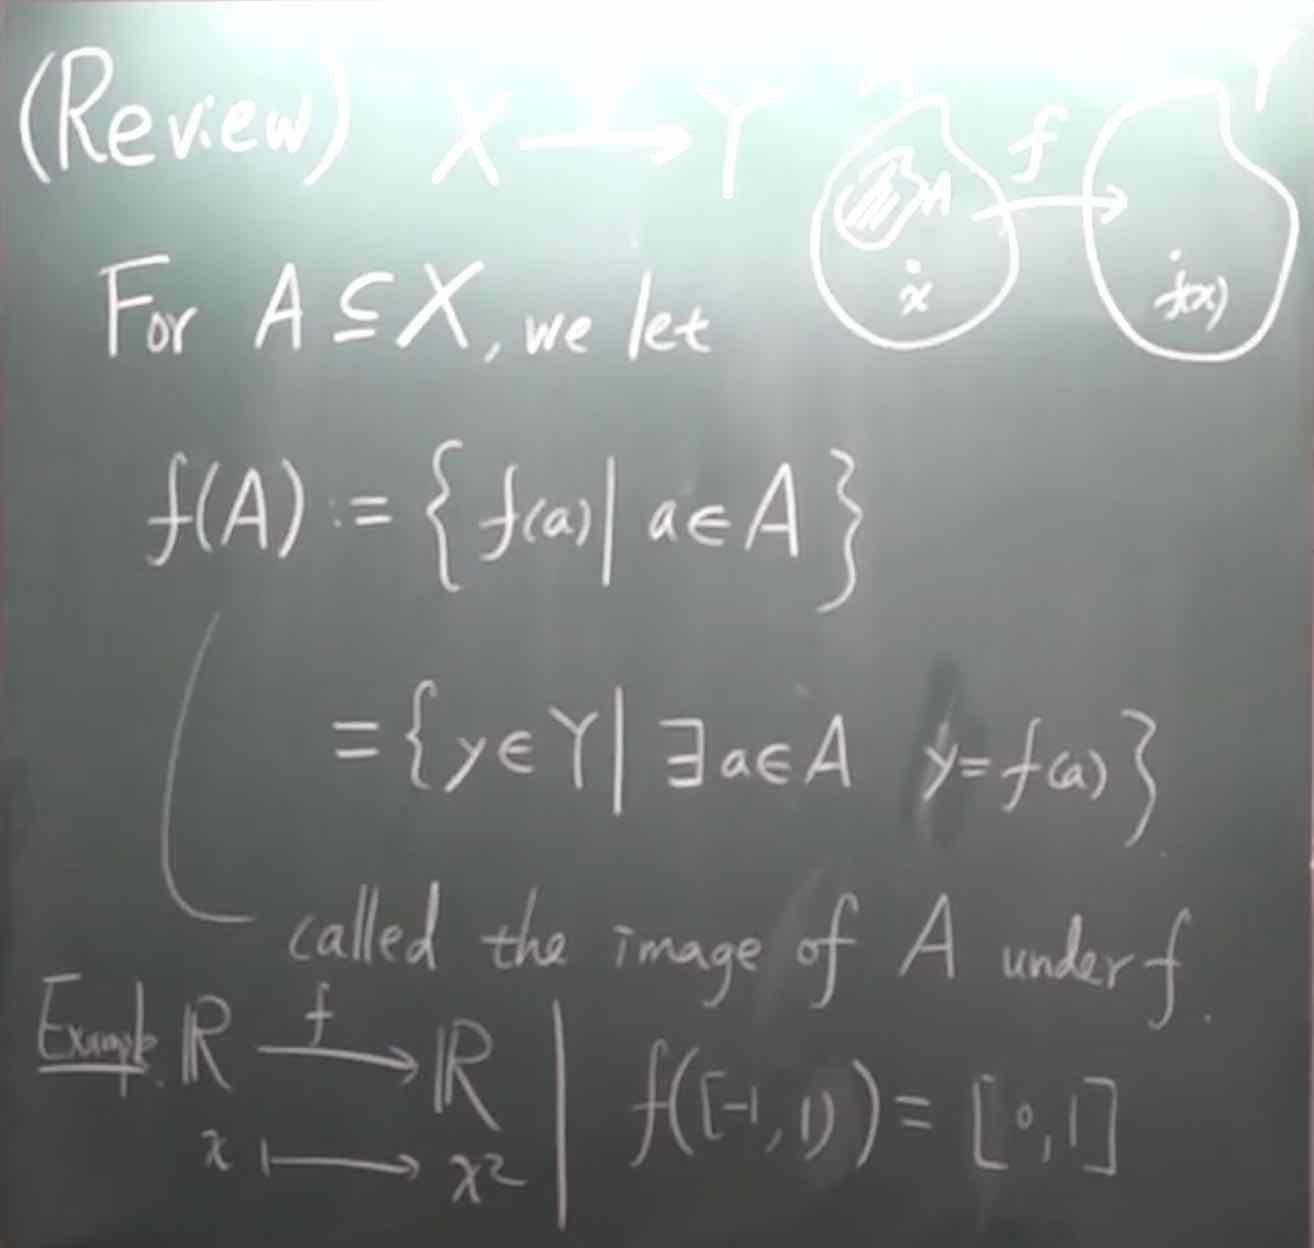 (Review) X ⟶ Y
Y
f
A
x
f(x)
For A ⊆ X, we let
f(A) := { f(a) | a ∈ A }
= { y ∈ Y | ∃ a ∈ A y = f(a) }
called the image of A under f.
Example. ℝ ⟶ ℝ | f([-1, 1)) = [0, 1]
f
x ⟼ x²